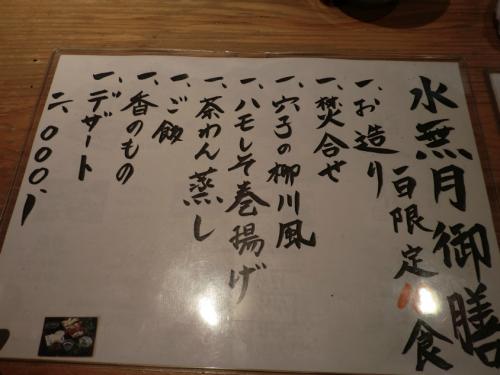 水無月御膳
一日限定10食
一、お造り
一、焚合せ
一、穴子の柳川風
一、ハモしそ巻揚げ
一、茶わん蒸し
一、ご飯
一、香のもの
一、デザート
二、〇〇〇、